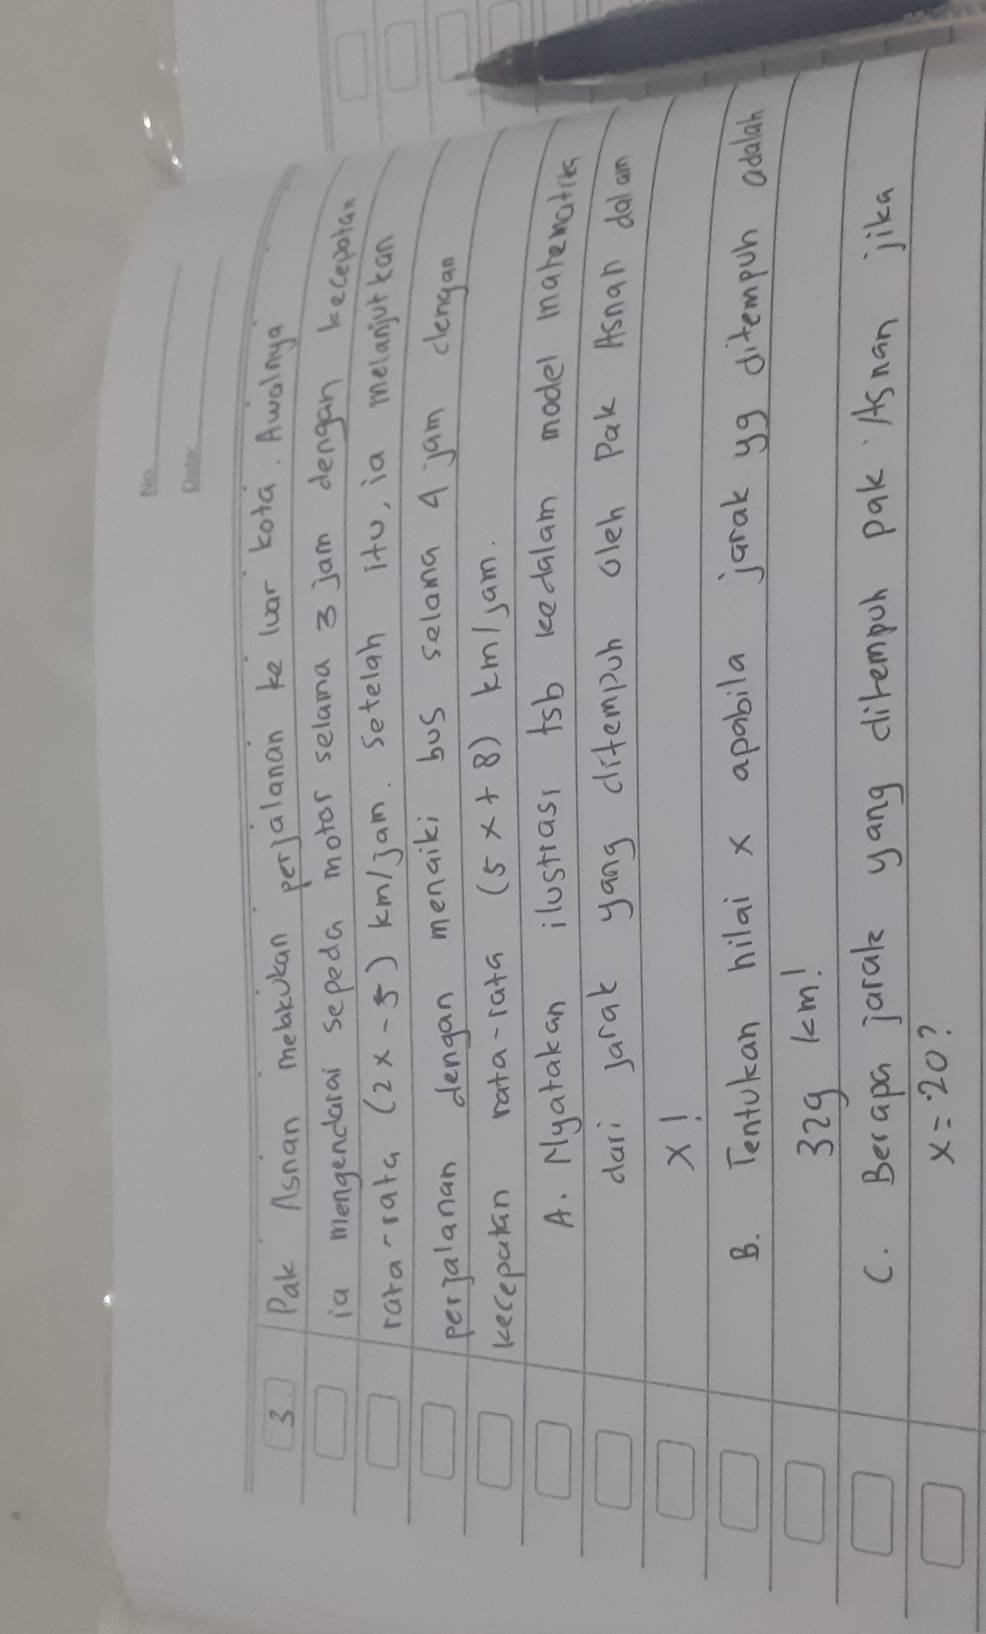 No.
Date:
3. Pak Asnan melakukan perjalanan ke luar kota. Awalnya
ia mengendarai sepeda motor selama 3 jam dengan kecepatan
rata-rata (2x-5) km/jam. Setelah itu, ia melanjutkan
perjalanan dengan menaiki bus selama 4 jam dengan
kecepatan rata-rata (5x+8) km/jam.
A. Nyatakan ilustrasi tsb kedalam model matematika
dari jarak yang ditempuh oleh Pak Asnan dalam
x!
B. Tentukan nilai x apabila jarak yg ditempuh adalah
329 km!
C. Berapa jarak yang ditempuh pak Asnan jika
x=20?